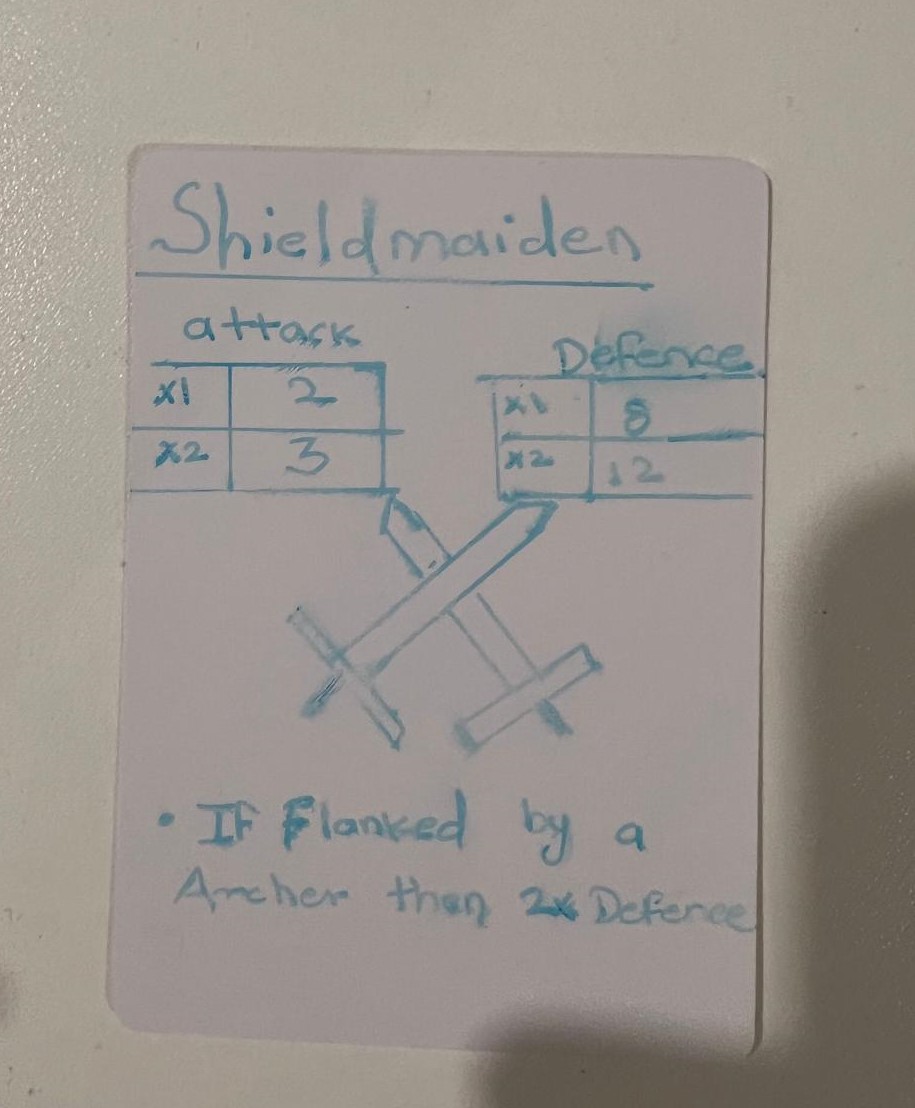 Shieldmaiden
attack
x1 2
x2 3
Defence
x1 8
x2 12
• If Flanked by a
Archer then 2x Defence